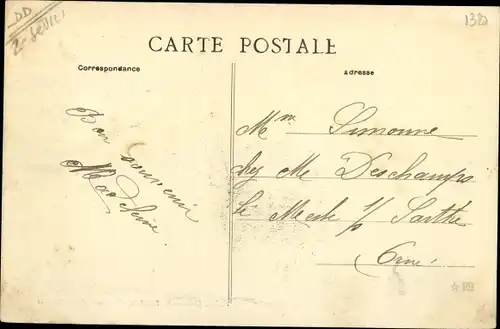 DD
1380
CARTE POSTALE
Correspondance
Adresse
Bon souvenir
Madeleine
Mme Simonne
chez Me Deschamps
Le Mesle s/ Sarthe
Orne